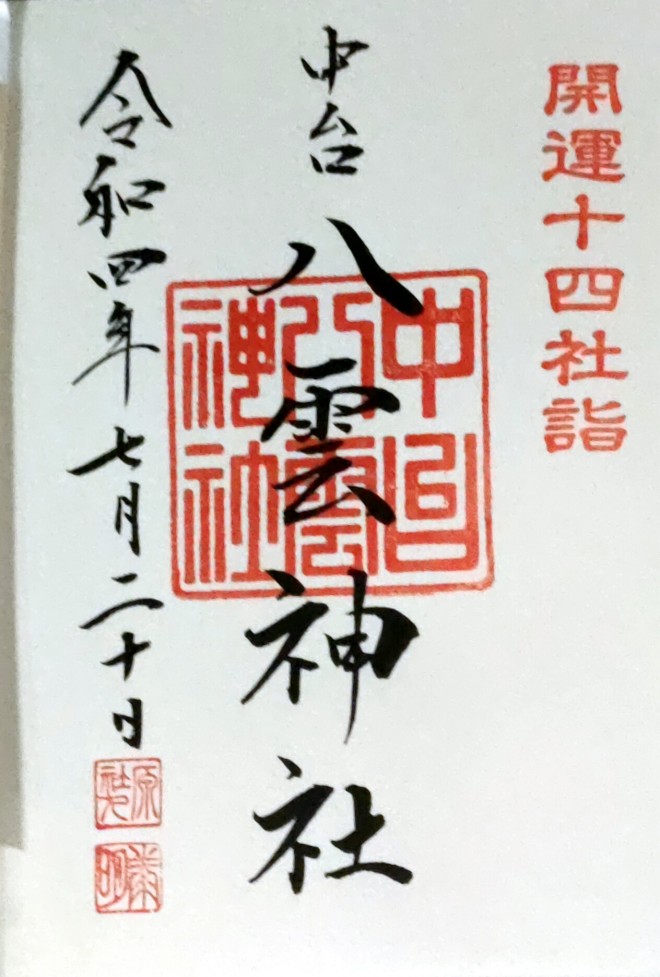 開運十四社詣
中台八雲神社
中台
八雲
神社
令和四年七月二十日